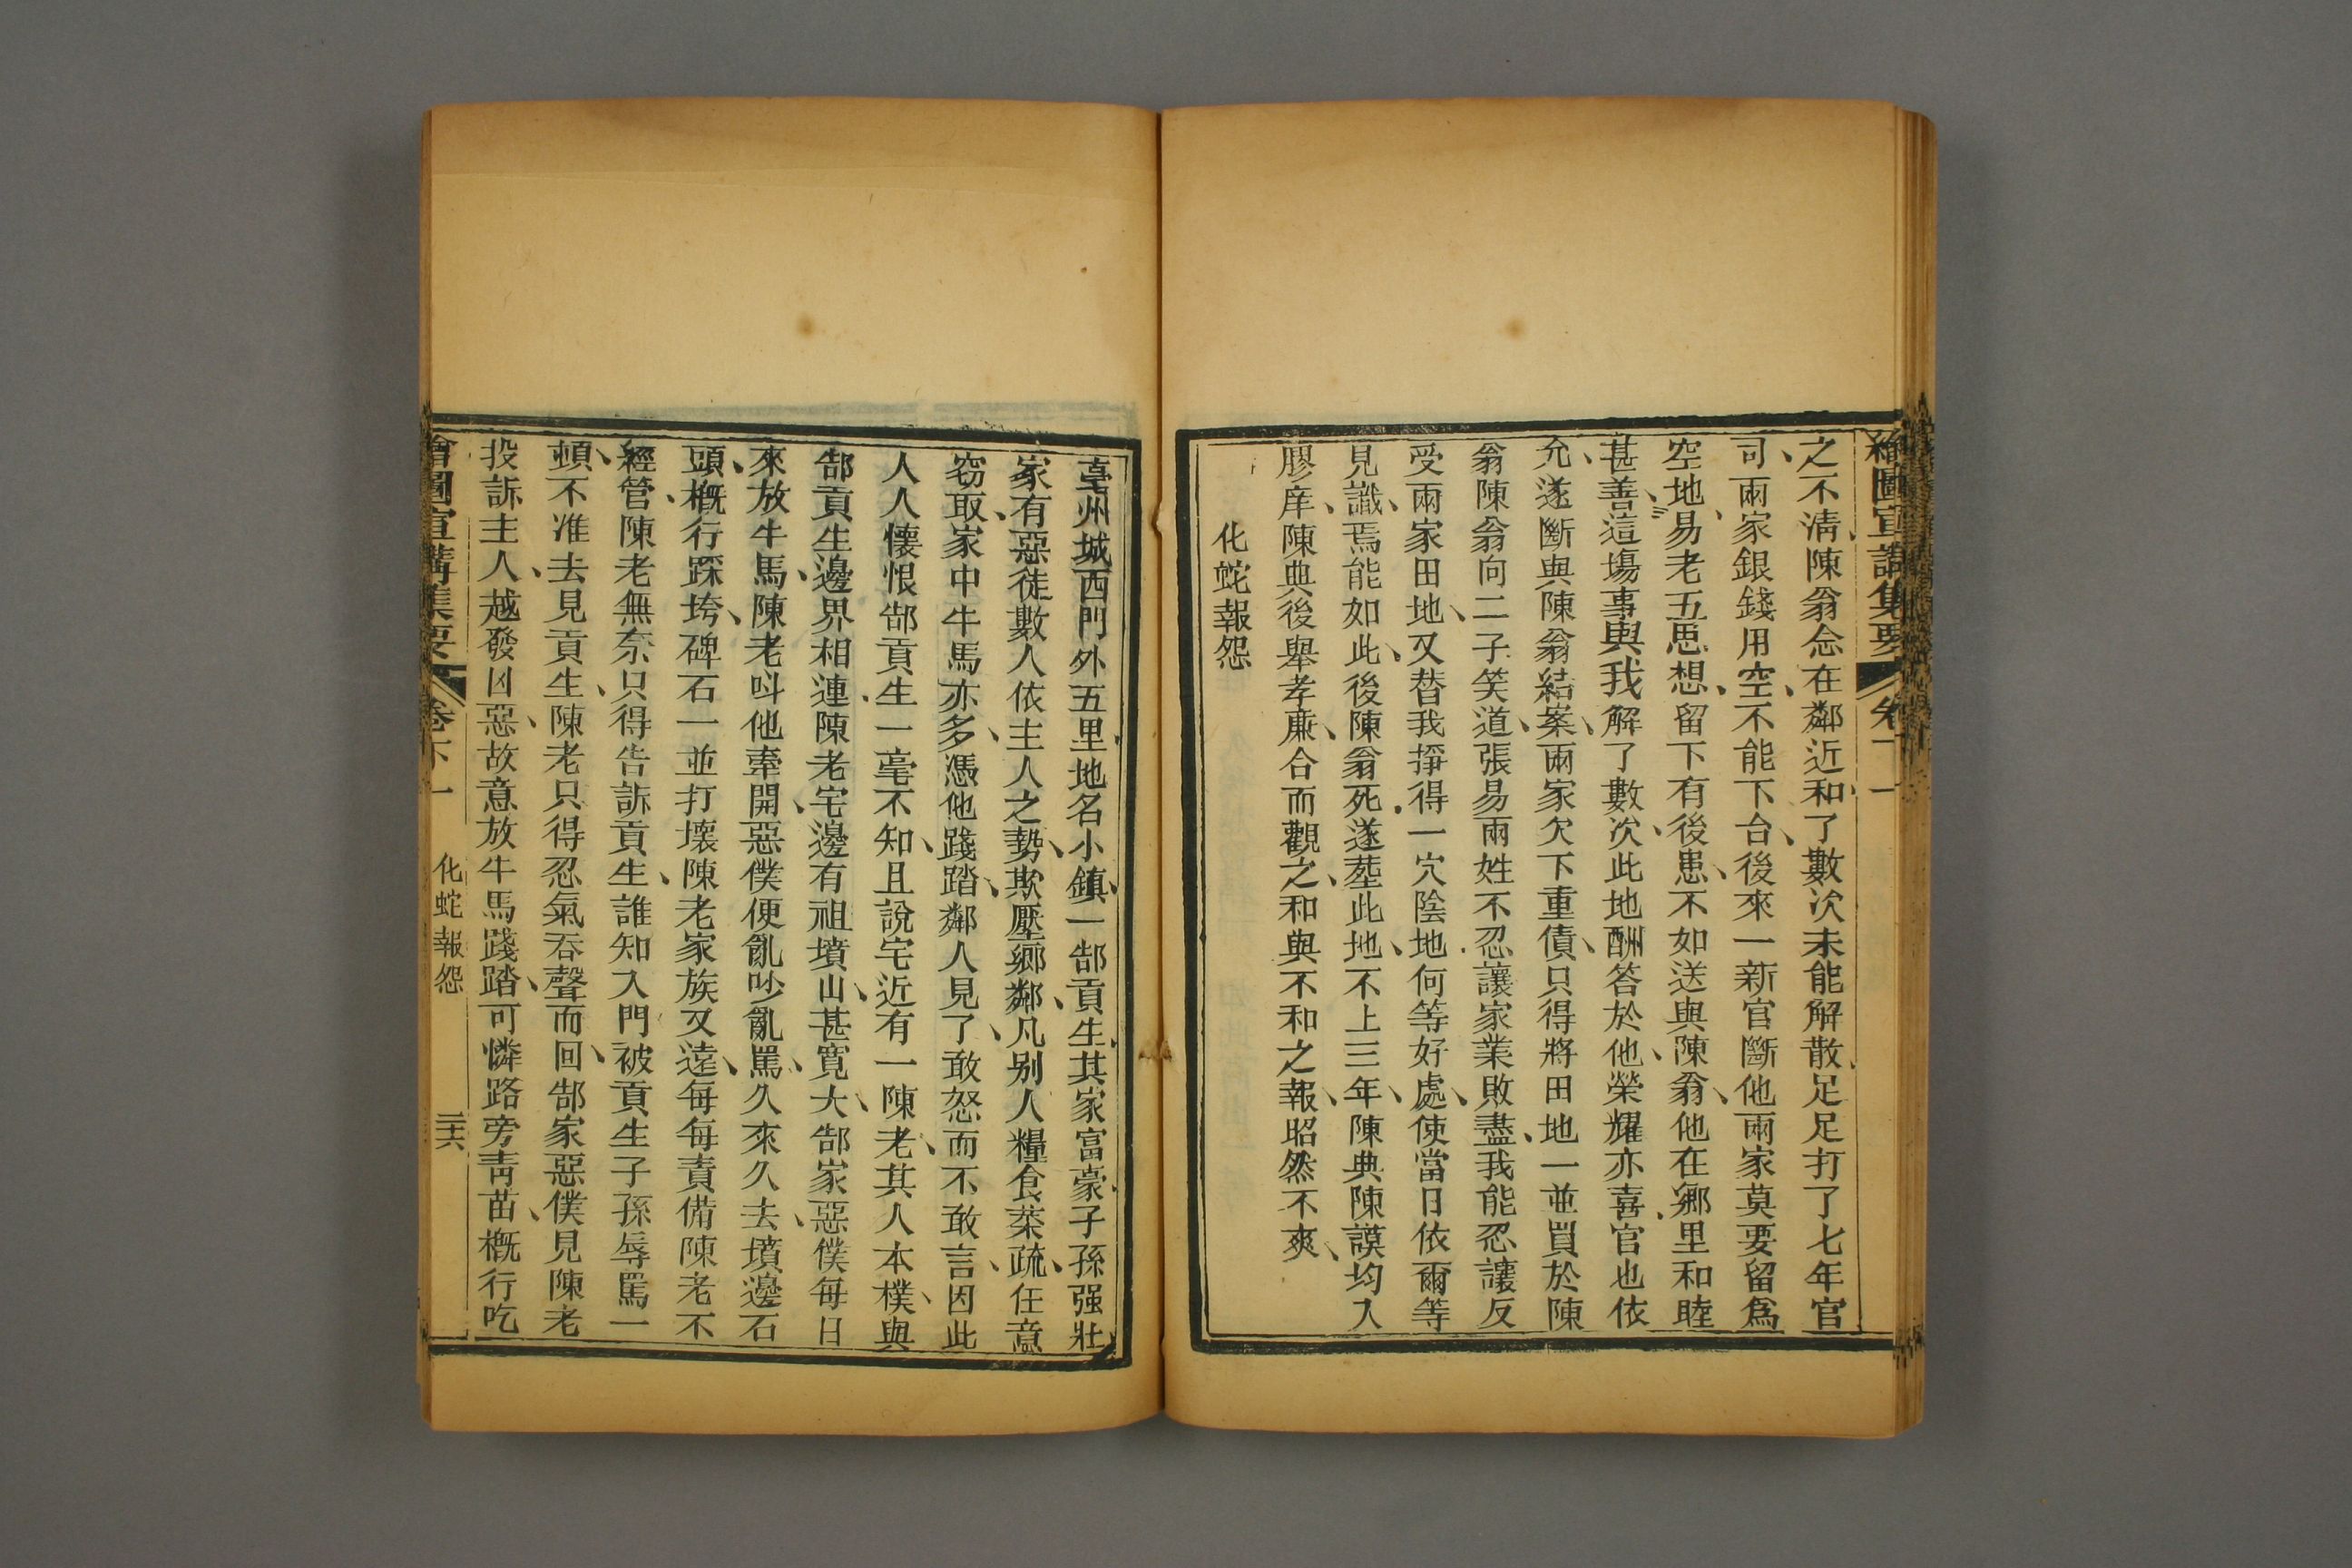 繪圖宣講集要 卷十一
之不淸陳翁念在鄰近和了數次未能解散足足打了七年官
司兩家銀錢用空不能下台後來一新官斷他兩家莫要留爲
空地易老五思想留下有後患不如送與陳翁他在鄉里和睦
甚善這塲事與我解了數次此地酬答於他榮耀亦喜官也依
允遂斷與陳翁結案兩家欠下重債只得將田地一並買於陳
翁陳翁向二子笑道張易兩姓不忍讓家業敗盡我能忍讓反
受兩家田地又替我掙得一穴陰地何等好處使當日依爾等
見識焉能如此後陳翁死遂塟此地不上三年陳典陳謨均入
膠庠陳典後舉孝亷合而觀之和與不和之報昭然不爽
化蛇報怨
亳州城西門外五里地名小鎮一郜貢生其家富豪子孫强壯
家有惡徒數人依主人之勢欺壓鄉鄰凡别人糧食菜疏任意
窃取家中牛馬亦多憑他踐踏鄰人見了敢怒而不敢言因此
人人懷恨郜貢生一毫不知且說宅近有一陳老其人本樸與
郜貢生邊界相連陳老宅邊有祖墳山甚寬大郜家惡僕每日
來放牛馬陳老呌他牽開惡僕便亂吵亂罵久來久去墳邊石
頭概行踩垮碑石一並打壞陳老家族又逺每每責備陳老不
經管陳老無奈只得告訴貢生誰知入門被貢生子孫辱罵一
頓不准去見貢生陳老只得忍氣吞聲而回郜家惡僕見陳老
投訴主人越發凶惡故意放牛馬踐踏可憐路旁靑苗概行吃
繪圖宣講集要 卷十一 化蛇報怨 三六